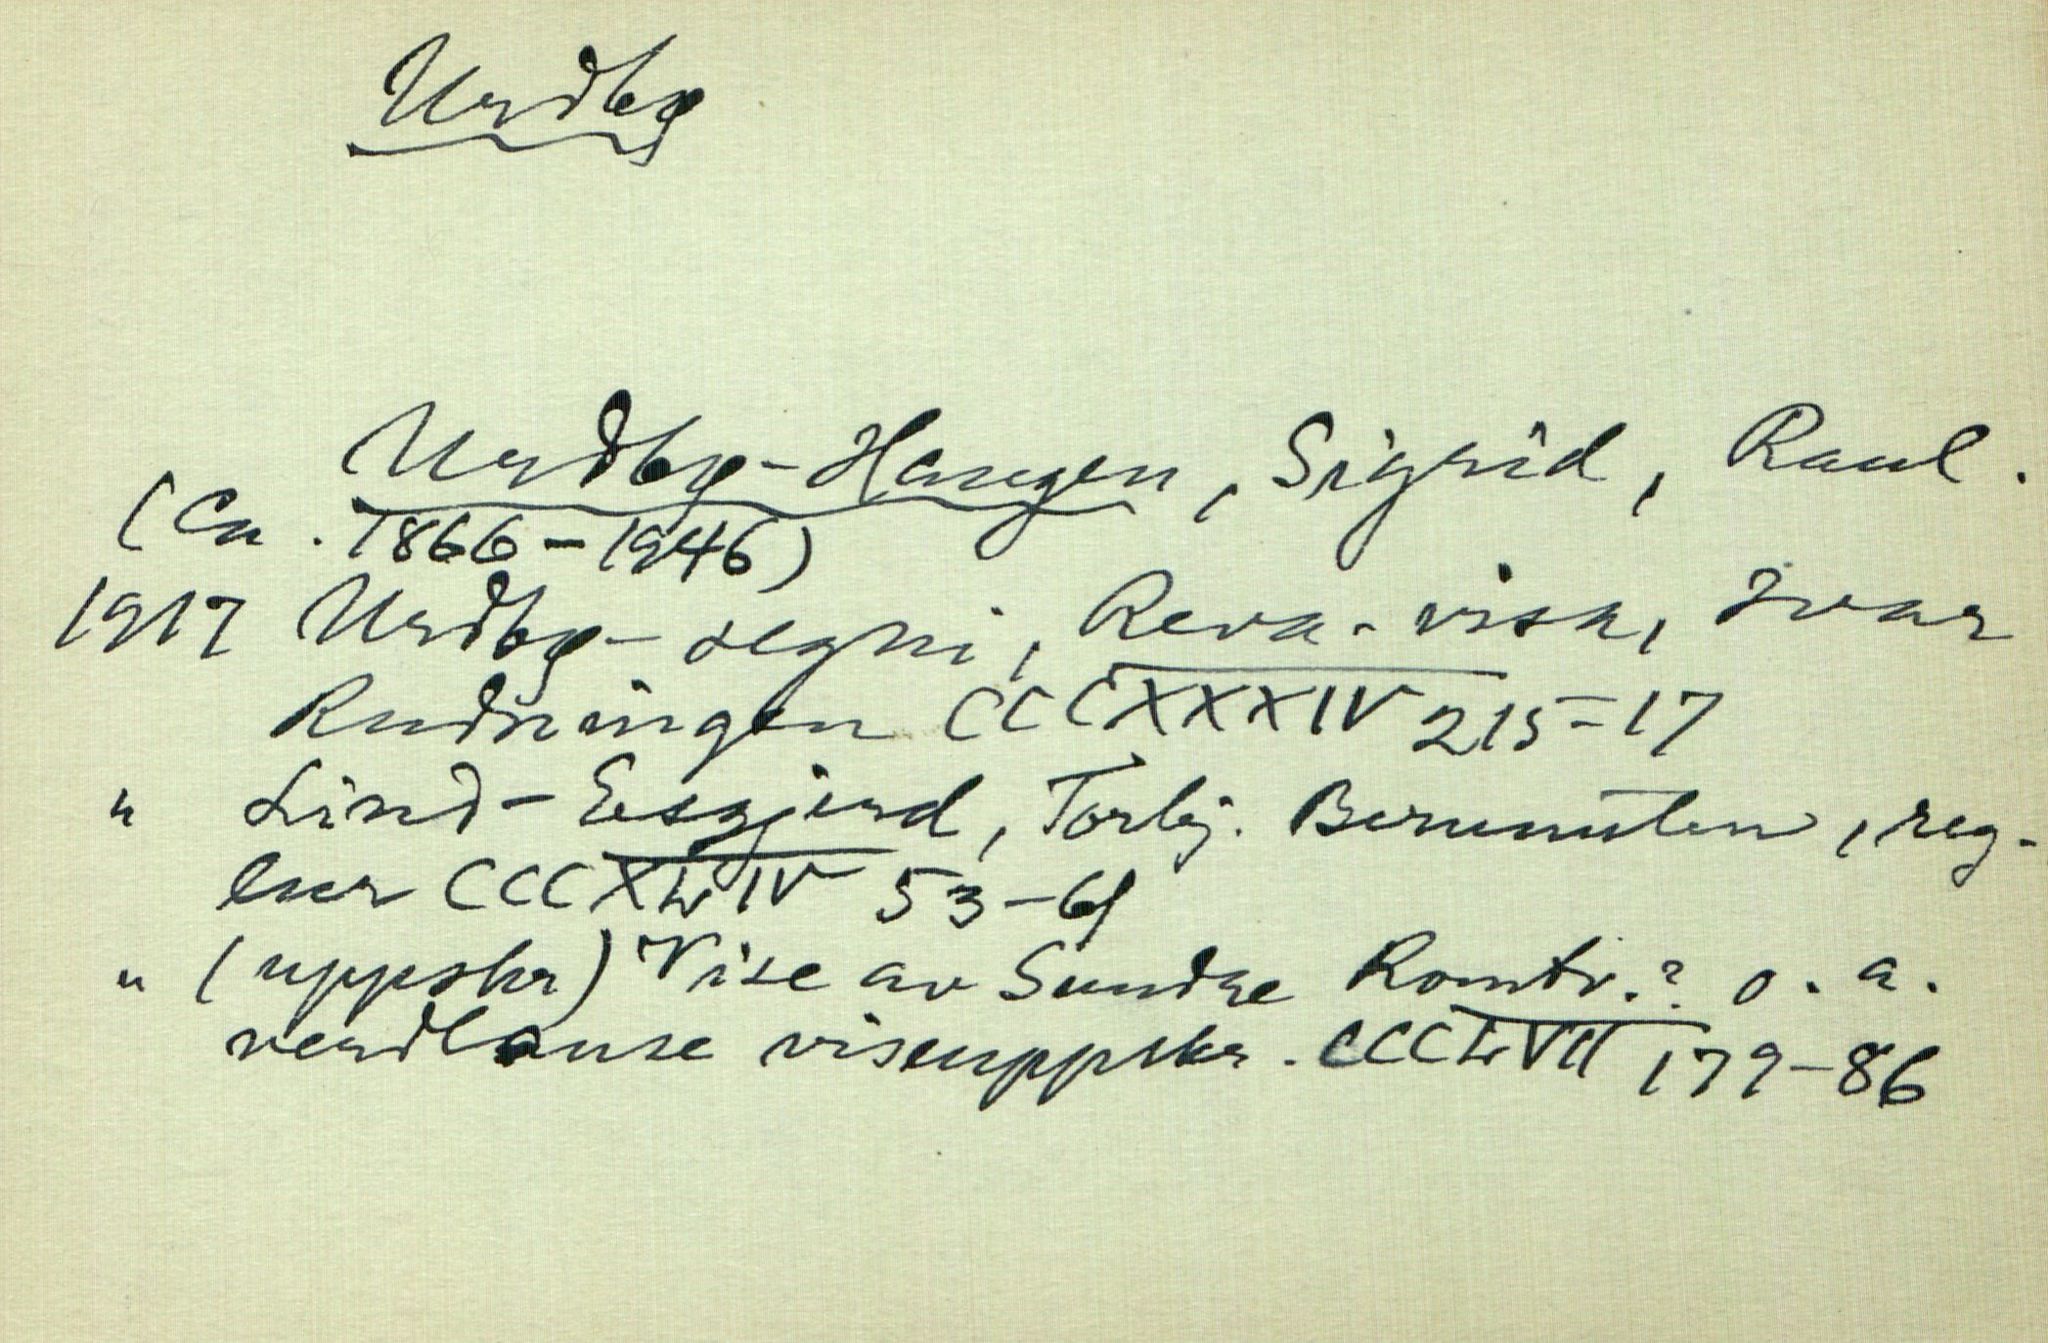 Urdbø
Urdbø-Haugen, Sigrid, Raul.
(Ca. 1866-1946)
1917 Urdbø-segni, Reva-visa, Ivar
Rudningen CCCXXXIV 215-17
" Lind-Esgjerd, Torbj. Bermuten, reg-
lur CCCXLIV 53-61
" (uppskr) Vise av Sundre Romtv.? o. a.
verdlause viseuppskr. CCCLVII 179-86